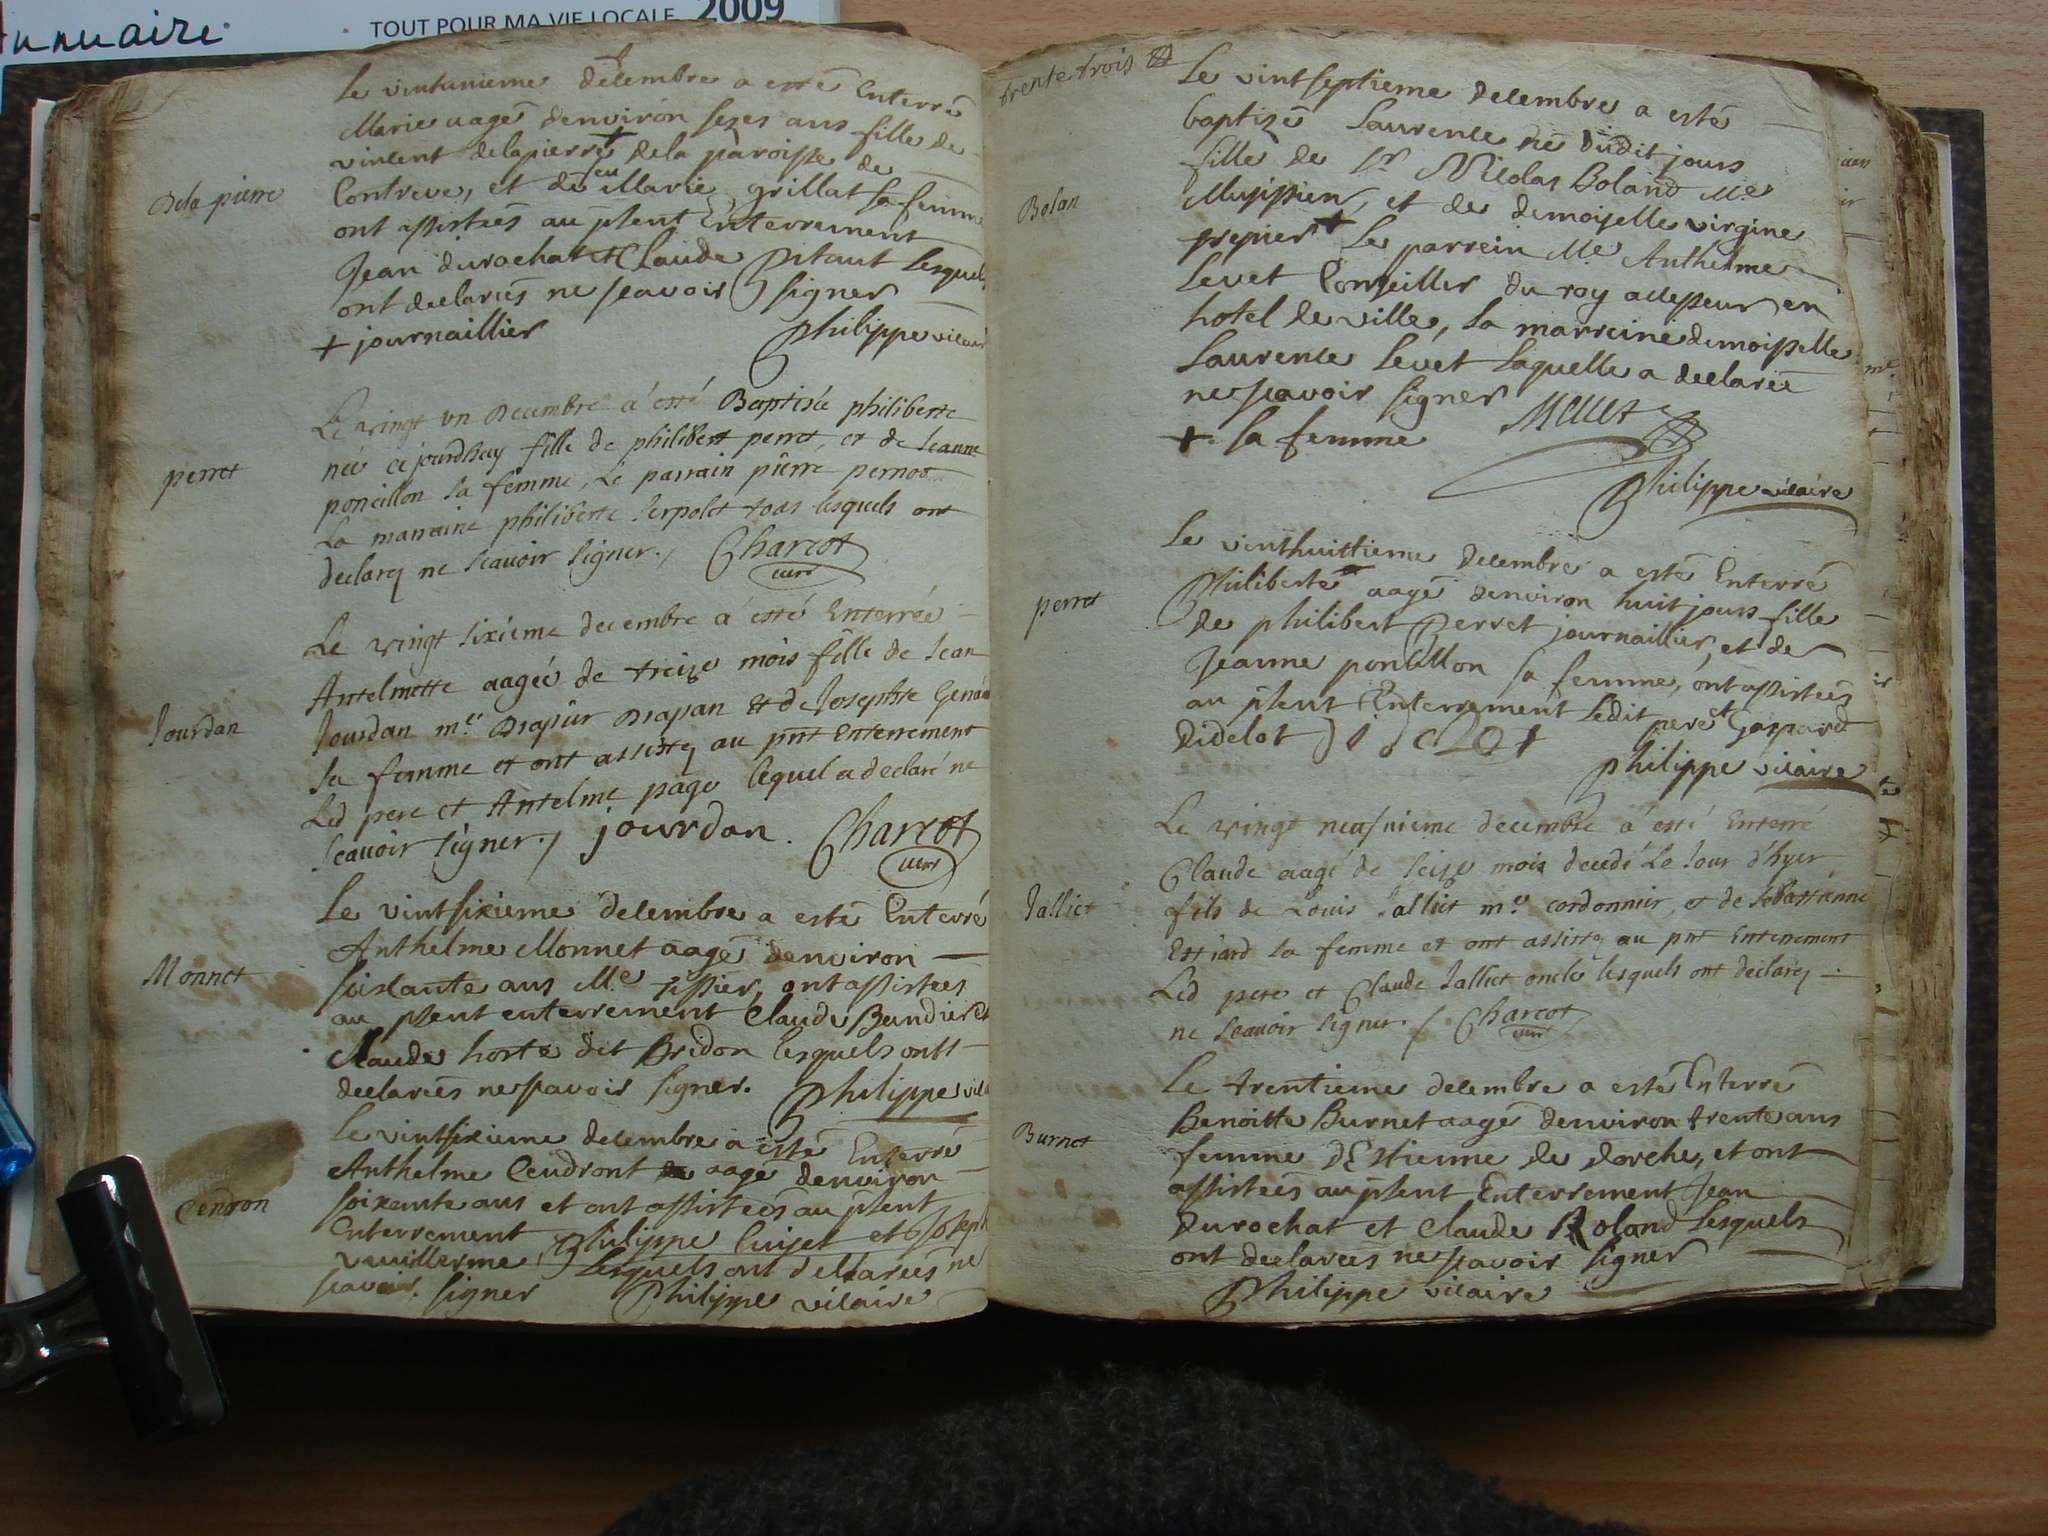 nnuaire
TOUT POUR MA VIE LOCALE 2009
Le vintunieme decembre a esté Enterré
Marie aagé denviron sezes ans fille de
vincent delapierre + dela paroisse de
Contreve, et de feu Marie grillat sa femme
Dela pierre
ont assistées au pñent Enterrement
Jean durochat et Claude Pitaut Lesquels
ont declareés ne scavoir signer
+ journaillier Philippe vicair
Le vingt un Decembre a'esté Baptisée philiberte
née ce jourdhuy fille de philibert perret, et de Jeanne
perret
poncillon sa femme, Le parrain pierre pernot
La marraine philiberte serpolet tous lesquels ont
declarez ne scavoir signer./ Charcot
vicre
Le vingt sixieme decembre a'esté Enterrée
Antelmette aagée de treize mois fille de Jean
Jourdan
Jourdan me. Drapier Drapan et de Josephte
sa femme et ont assistez au pnt Enterrement
Led pere et Antelme page lequel a declaré ne
scavoir signer./ jourdan. Charcot
vicre
Le vintsixieme decembre a esté Enterré
Anthelme Monnet aagé denviron
Monnet
soixante ans Me. tissier, ont assistées
au pñent enterrement Claude Bundier et
Claude hoste dit Bridon lesquels ont
declareés ne scavoir signer. Philippe vic
Le vintsixieme decembre a esté Enterré
Anthelme Cendront aagé denviron
Cendron
soixante ans et ont assisteés au pñent
Enterrement Philippe Cuijet et Joseph
vuillerme, Lesquels ont declareés ne
scavoir signer Philippe vicaire
trente trois
Le vintseptieme decembre a esté
baptizé Laurence né dudit jours
fille de Sr. Nicolas Boland Me.
Bolan
Musissien, et de demoiselle virgine
+ Le parrein Me. Anthelme
Levet Conseiller du roy assesseur en
hotel de ville, La marreine demoisselle
Laurence Levet Laquelle a declareé
ne scavoir signer
+ sa femme
Philippe vicaire
Le vinthuittieme decembre a esté Enterré
Philiberte aagé denviron huit jours fille
perret
de philibert Perret journaillier, et de
Jeanne poncillon sa femme, ont assisteés
au pñent Enterrement Ledit pere et Gaspard
Didelot
Philippe vicaire
Le vingt neufvieme decembre a'esté Enterré
Claude aagé de seize mois decedé Le Jour d'hyer
Jalliet
fils de Louis Jalliet me. cordonnier, et de Sebastienne
Estiard sa femme et ont assistez au pnt Enterrement
Led pere et Claude Jalliet oncle lesquels ont declarez
ne scavoir signer./ Charcot
vicre
Le trentieme decembre a esté Enterré
Benoitte Burnet aagé denviron trente ans
Burnet
femme d'Estienne de dorche, et ont
assisteés au pñent Enterrement Jean
durochat et Claude Roland Lesquels
ont declareés ne scavoir signer
Philippe vicaire